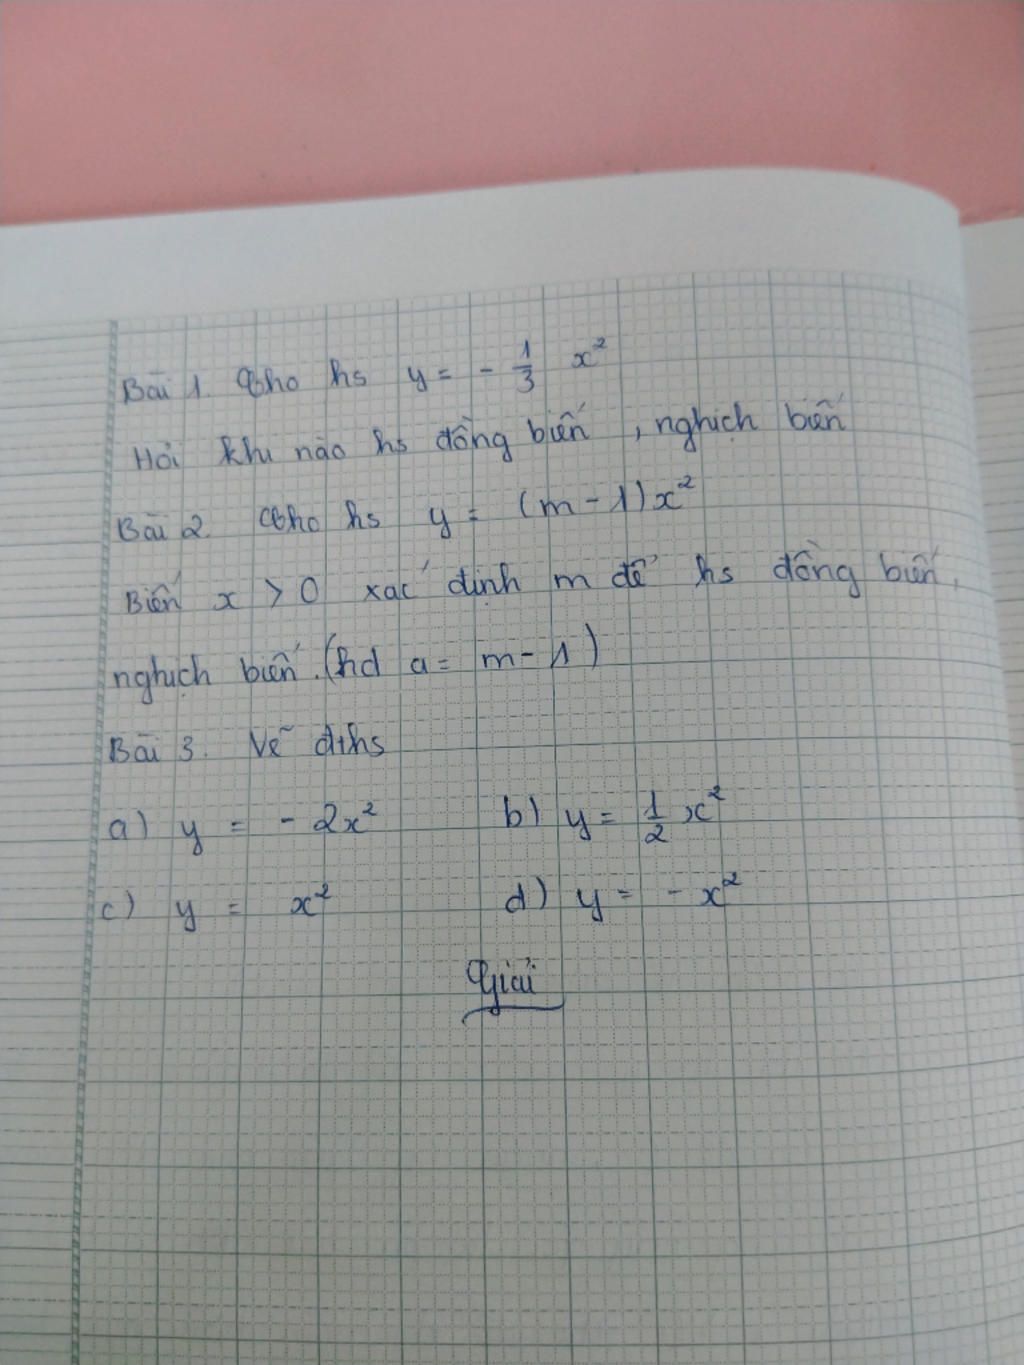 Bài 1. Cho hs y = - 1/3 x²
Hỏi khi nào hs đồng biến, nghịch biến
Bài 2. Cho hs y = (m - 1)x²
Biến x > 0 xác định m để hs đồng biến,
nghịch biến. (hd a = m - 1)
Bài 3. Vẽ đths
a) y = - 2x² b) y = 1/2 x²
c) y = x² d) y = - x²
Giải